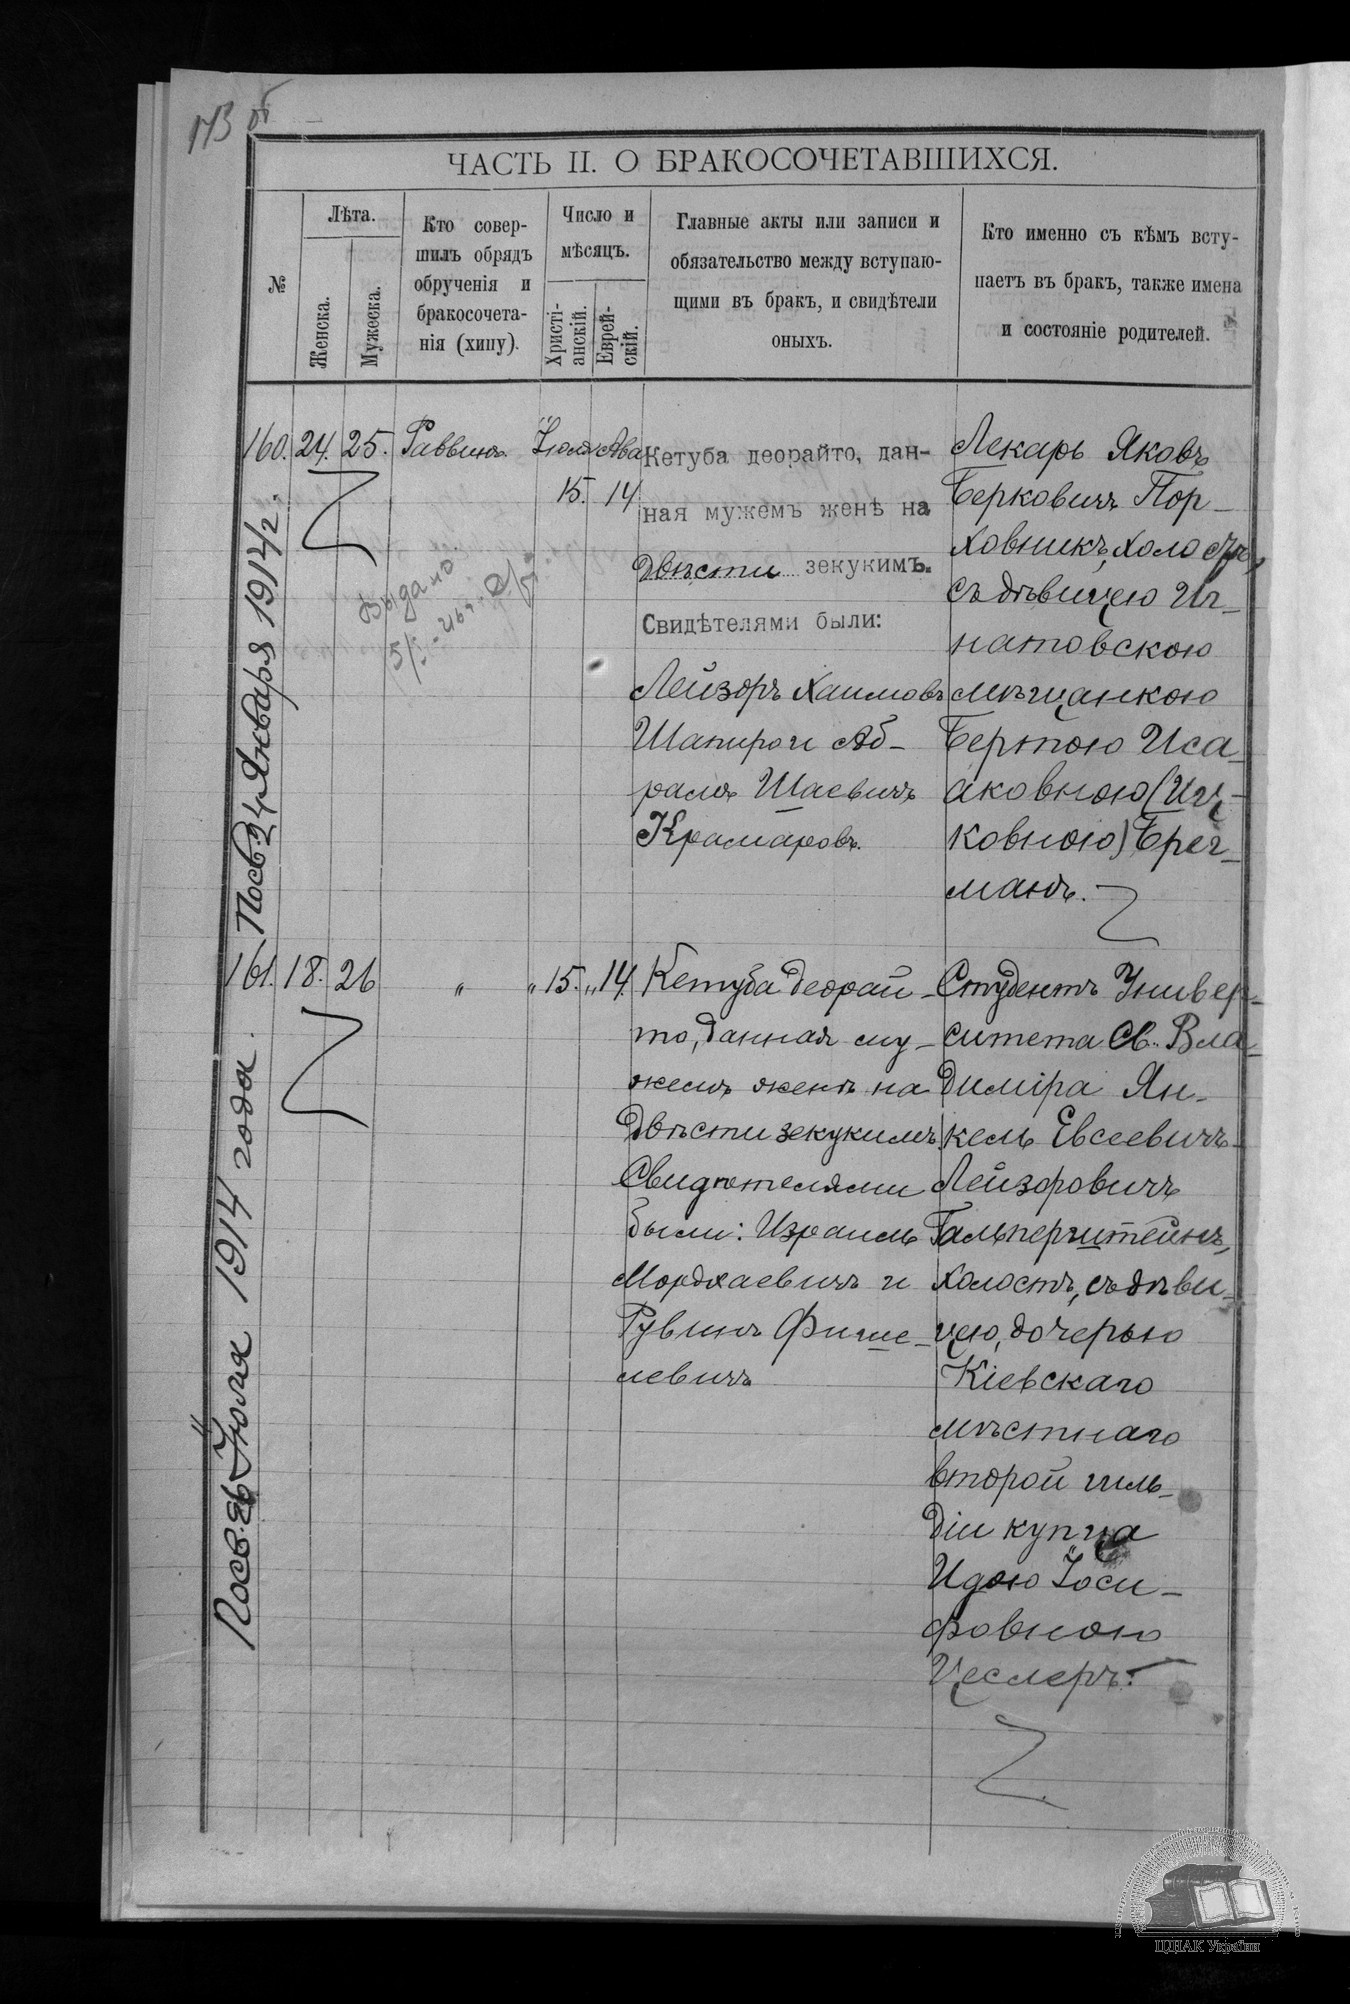 173 об
ЧАСТЬ II. О БРАКОСОЧЕТАВШИХСЯ.
№
Лѣта.
Женска.
Мужеска.
Кто совер-
шилъ обрядъ
обрученія и
бракосочета-
нія (хипу).
Число и
мѣсяцъ.
Христі-
анскій.
Еврей-
скій.
Главные акты или записи и
обязательство между вступаю-
щими въ бракъ, и свидѣтели
оныхъ.
Кто именно съ кѣмъ всту-
паетъ въ бракъ, также имена
и состояніе родителей.
160. 24. 25. Раввинъ. Іюля Ава
15. 14
Кетуба деорайто, дан-
ная мужемъ женѣ на
двѣсти зекукимъ.
Свидѣтелями были:
Лейзоръ Хаимовъ
Шапиро и Аб-
рамъ Шаевичъ
Крамаровъ.
Лекарь Яковъ
Беркович Пор-
ховникъ, холостъ,
съ дѣвицею Иг-
натовскою
мѣщанкою
Бертою Иса-
аковною (Иц-
ковною) Брег-
манъ.
Выдано
161. 18. 26 " " 15. " 14.
Кетуба деорай-
то, данная му-
жемъ женѣ на
двѣсти зекукимъ.
Свидѣтелями
были: Израиль
Мордхаевичъ и
Рувинъ Фише-
левичъ
Студентъ Универ-
ситета Св. Вла-
диміра Ян-
кель Евсеевичъ-
Лейзоровичъ
Гальперштейнъ,
холостъ, съ дѣви-
цею, дочерью
Кіевскаго
мѣстнаго
второй гиль-
діи купца
Идою Іоси-
фовною
Цеслеръ.
Посв. 24 Января 1914 г.
Посв. Іюля 1914 года.
ЦДІАК України